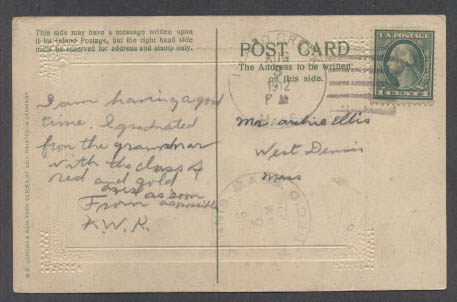 This side may have a message written upon
it for Inland Postage, but the right hand side
must be reserved for address and stamp only.
POST CARD
The Address to be written
on this side.
AUG
1912
P M
U.S. POSTAGE
1 CENT 1
I am having a good
time. I graduated
from the grammar
with the class of
red and gold
as soon
as possible
From
K.W.R.
Mr. Archie Ellis
West Dennis
Mass